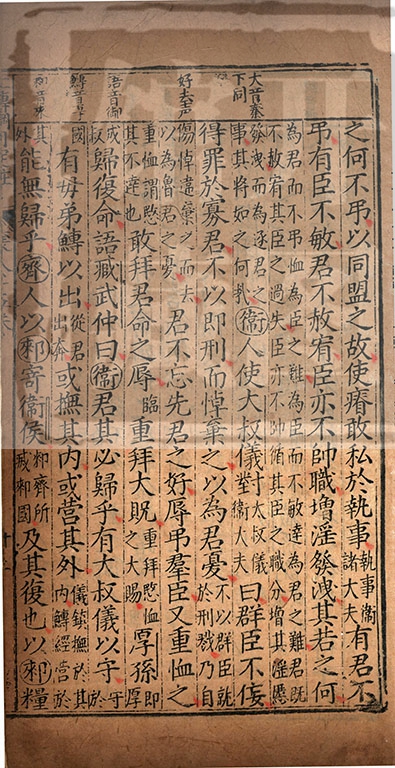 之何不弔以同盟之故使瘠敢私於執事執事衛諸大夫有君不
弔有臣不敏君不赦宥臣亦不帥職增淫發洩其若之何
為君而不弔恤為臣之難為臣而不敏達為君之難君既
不赦宥其臣之過失臣亦不帥循其臣之職分增其淫慝
大音泰
下同
發洩而為逐君之
事其將如之何哉
衛人使大叔儀對大叔儀衛大夫曰群臣不佞
得罪於寡君不以即刑而悼棄之以為君憂不以群臣就於刑戮乃自
好去声
傷悼遺棄之而去
以為魯君之憂
君不忘先君之好辱弔羣臣又重恤之
重恤謂愍
其不達也
敢拜君命之辱臨重拜大貺重拜愍恤之大賜厚孫即厚
語音御
成叔歸復命語臧武仲曰衛君其必歸乎有大叔儀以守守於
國有母弟鱄以出從君出奔或撫其內或營其外儀鎮撫於其內鱄經營於
郲音來
其外能無歸乎齊人以郲寄衛侯郲齊所滅郲國及其復也以郲糧